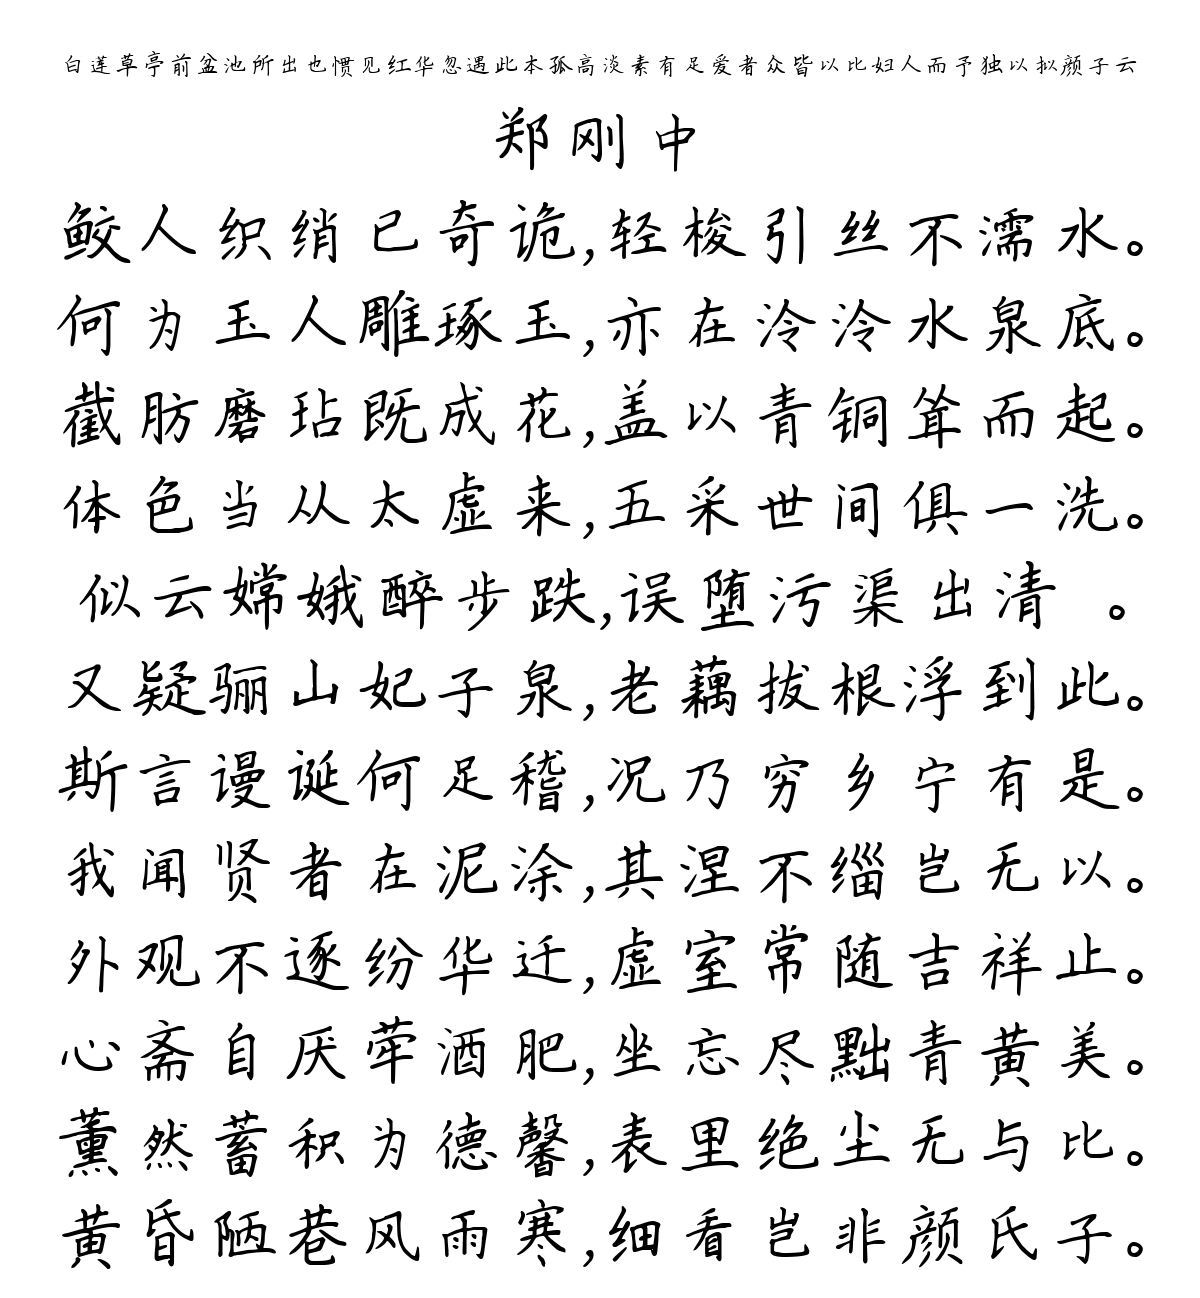 白莲草亭前盆池所出也惯见红华忽遇此本孤高淡素有足爱者众皆以比妇人而予独以拟颜子云
郑刚中
鲛人织绡已奇诡,轻梭引丝不濡水。
何为玉人雕琢玉,亦在泠泠水泉底。
截肪磨玷既成花,盖以青铜耸而起。
体色当从太虚来,五采世间俱一洗。
似云嫦娥醉步跌,误堕污渠出清 。
又疑骊山妃子泉,老藕拔根浮到此。
斯言谩诞何足稽,况乃穷乡宁有是。
我闻贤者在泥涂,其涅不缁岂无以。
外观不逐纷华迁,虚室常随吉祥止。
心斋自厌荤酒肥,坐忘尽黜青黄美。
薰然蓄积为德馨,表里绝尘无与比。
黄昏陋巷风雨寒,细看岂非颜氏子。